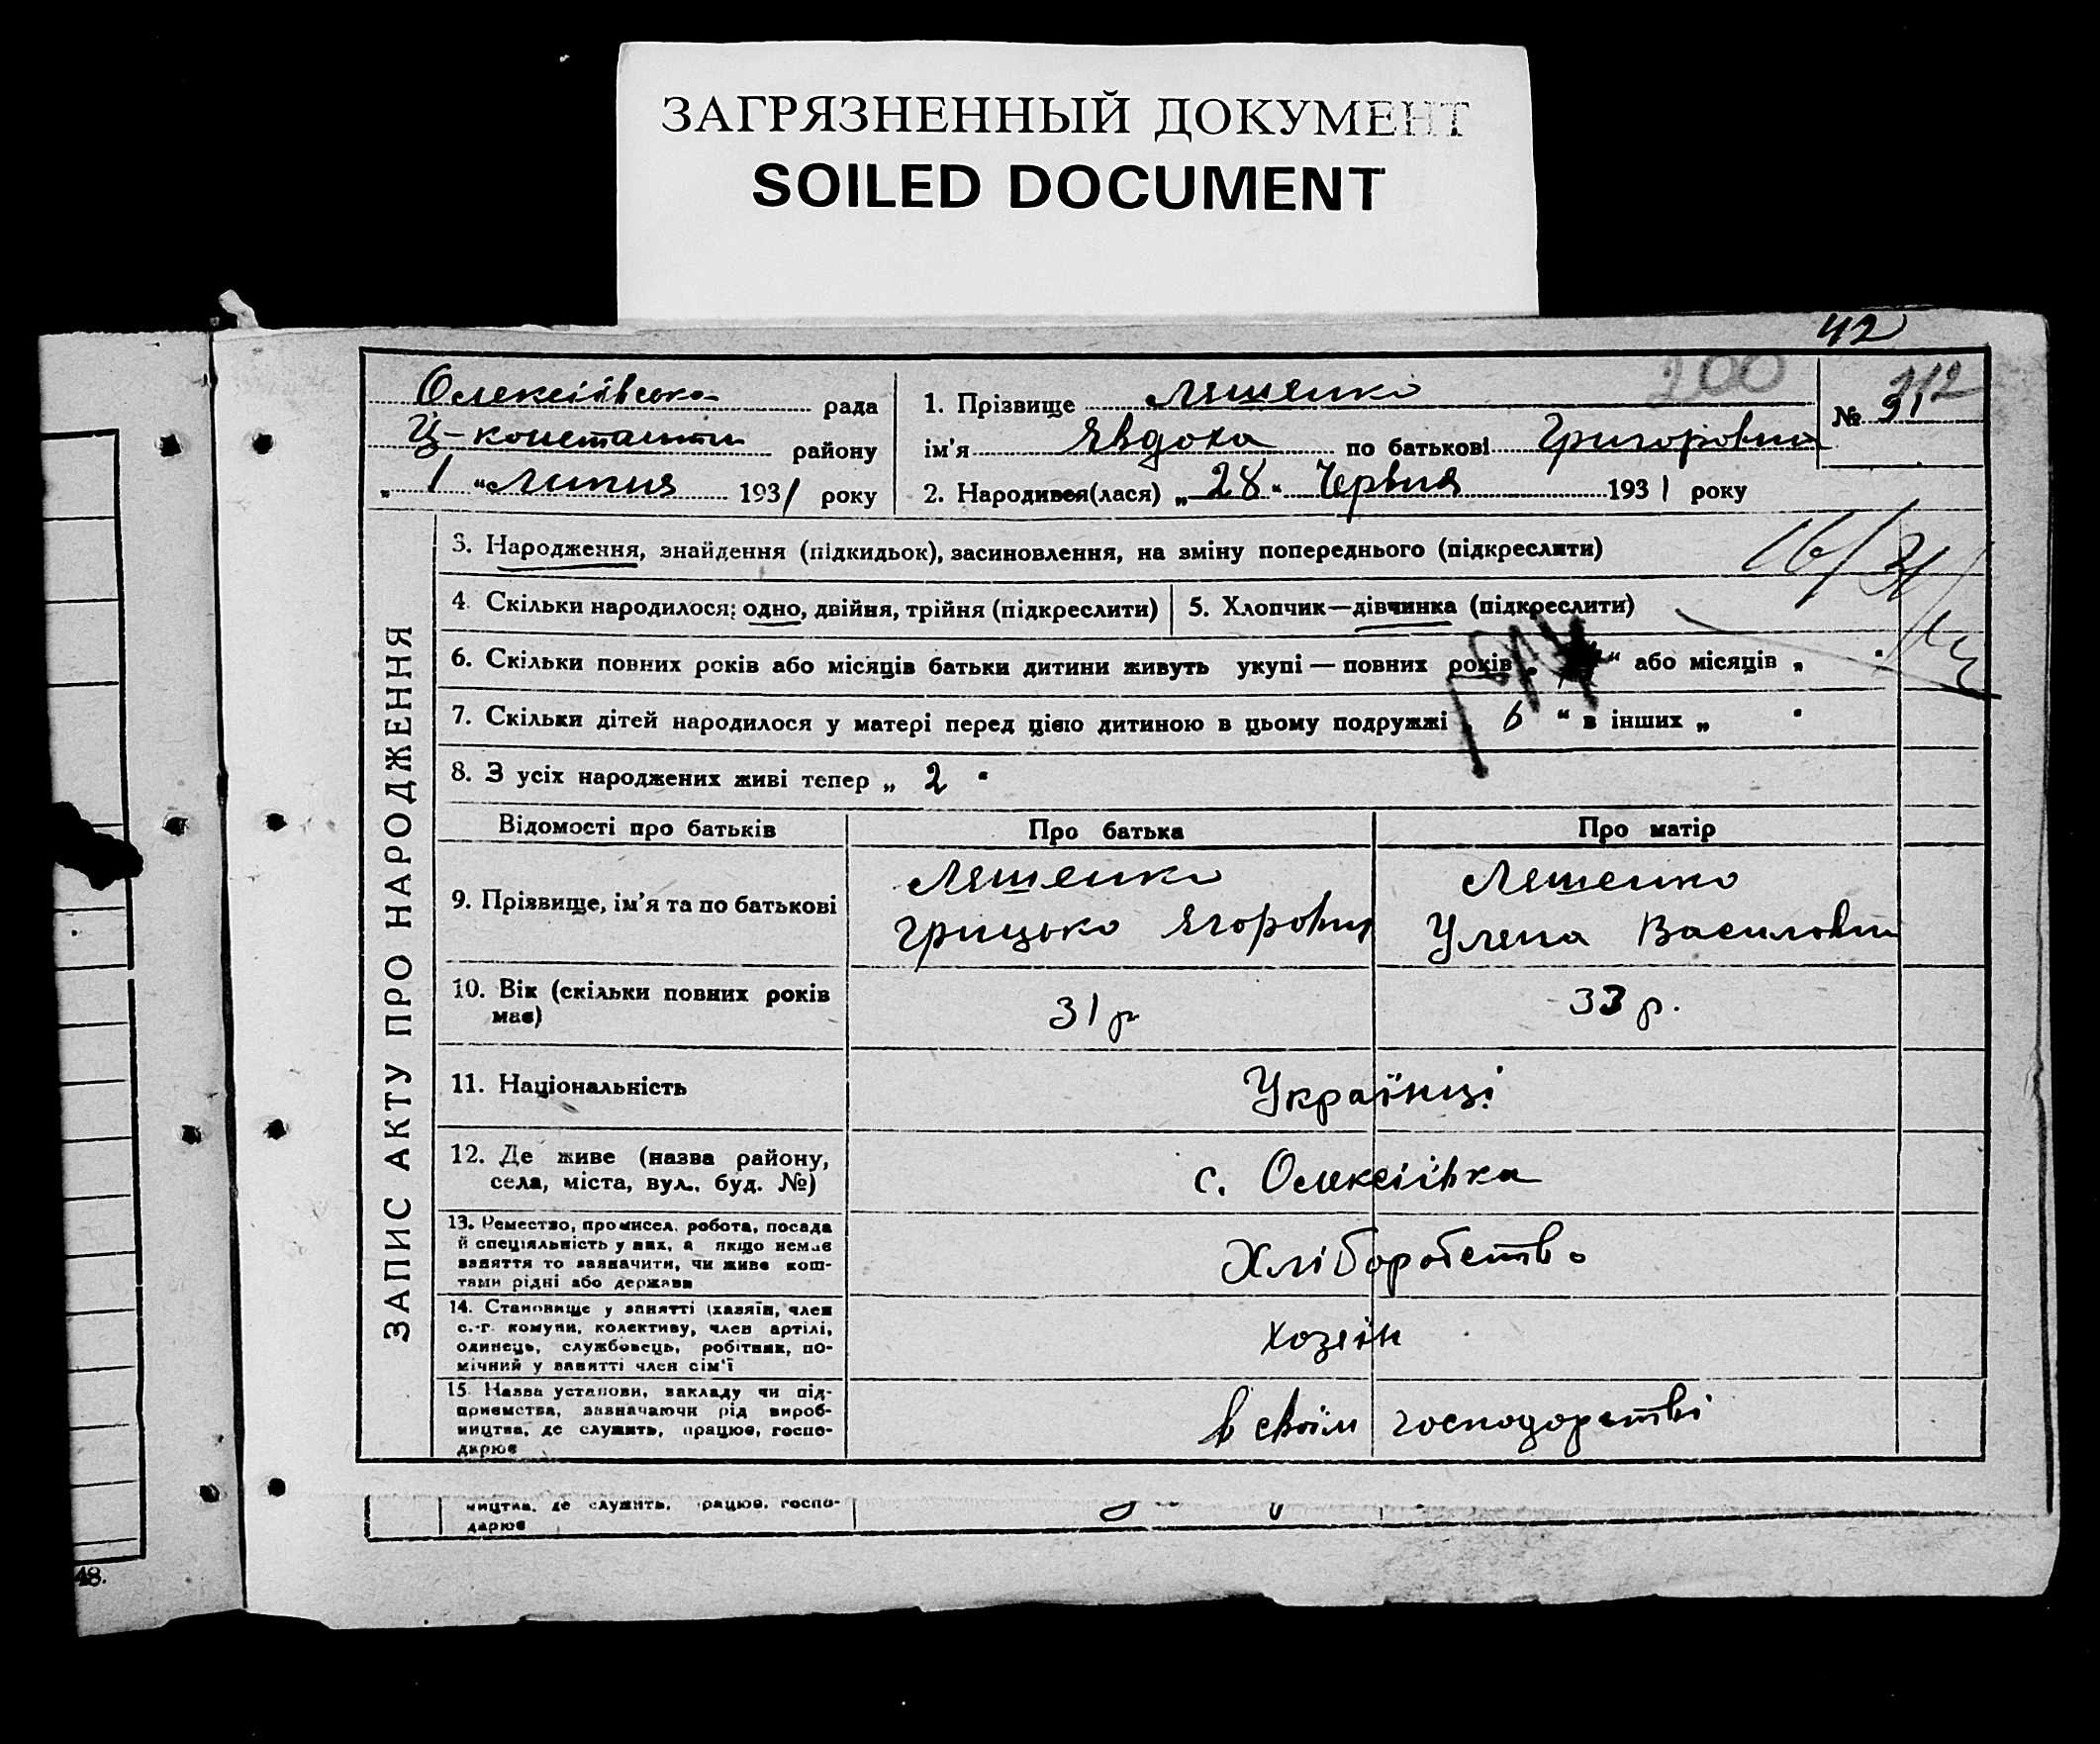 ЗАГРЯЗНЕННЫЙ ДОКУМЕНТ
SOILED DOCUMENT
42
200
Олексіївська рада
Ц-константи району
„ 1 “ Липня 1931 року
1. Прізвище Ляшенко
ім'я Явдоха по батькові Григоровна
2. Народився(лася) „ 28 “ Червня 1931 року
№ 91
212
ЗАПИС АКТУ ПРО НАРОДЖЕННЯ
3. Народження, знайдення (підкидьок), засиновлення, на зміну попереднього (підкреслити)
4. Скільки народилося: одно, двійня, трійня (підкреслити)
5. Хлопчик—дівчинка (підкреслити)
6. Скільки повних років або місяців батьки дитини живуть укупі — повних років „ “ або місяців „ “
7. Скільки дітей народилося у матері перед цією дитиною в цьому подружжі „ 6 “ в інших „ “
8. З усіх народжених живі тепер „ 2 “
Відомості про батьків Про батька Про матір
9. Прізвище, ім'я та по батькові
Ляшенко
Грицько Ягорович
Ляшенко
Уляна Василовна
10. Вік (скільки повних років
має)
31 р
33 р.
11. Національність
Українці
12. Де живе (назва району,
села, міста, вул., буд. №)
с. Олексіївка
13. Ремество, промисел, робота, посада
й спеціяльність у них, а якщо немає
заняття то зазначити, чи живе кош-
тами рідні або держави
Хліборобство
14. Становище у занятті (хазяїн, член
с.-г. комуни, колективу, член артілі,
одинець, службовець, робітник, по-
мічний у занятті член сім'ї
хозяїн
15. Назва установи, закладу чи під-
приємства, зазначаючи рід вироб-
ництва, де служить, працює, госпо-
дарює
в своїм господорстві
ництва, де служить, працює, госпо-
дарює
48.